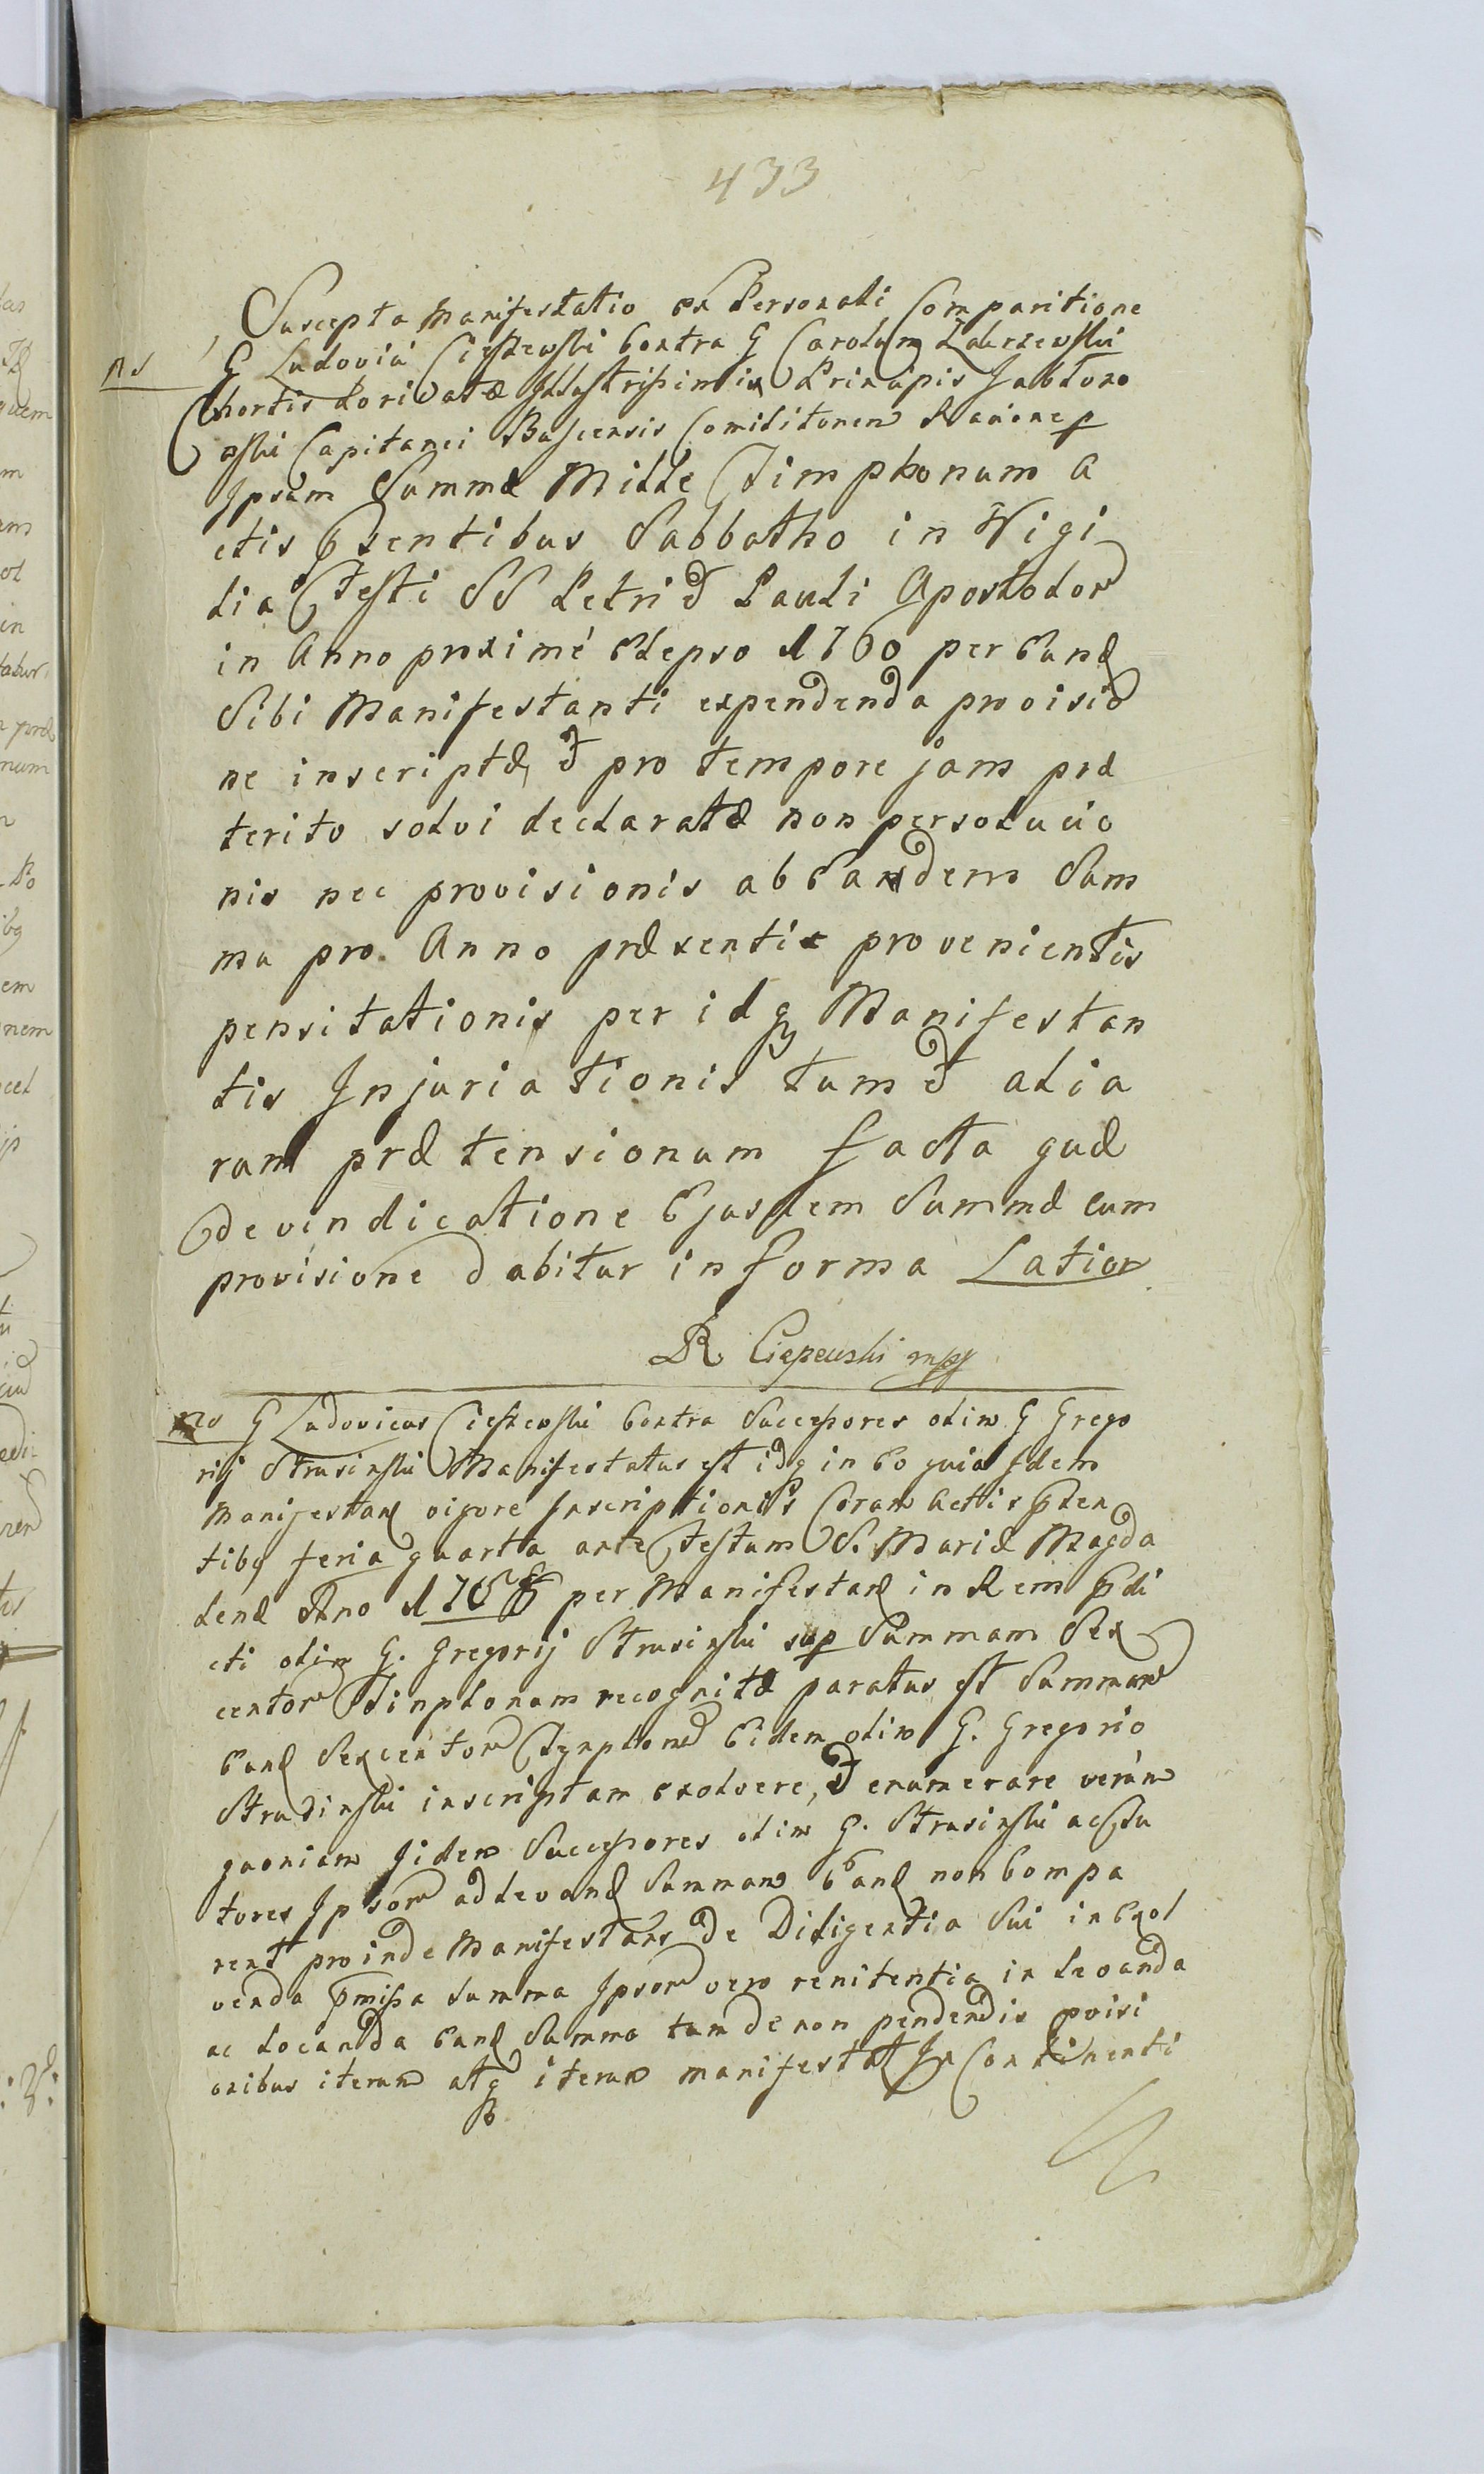 433
Suscepta Manifestatio ex Personali Comparitione
ns G Ludovici Cieszewski Contra G Carolum Zakrzewski
Chortis Loricatæ Illustrissimi Principis Jabłono
wski Capitanei Buscensis Comilitonem Racione p
Ipsum Summæ Mille Timphonum A
ctis psentibus Sabbatho in Vigi
lia Festi SS Petri & Pauli Apostolor
in Anno proximé Elepso 1760 per Eund
Sibi Manifestanti expendenda provisio
ne inscriptæ, & pro tempore jam præ
terito solvi declaratæ non persolucio
nis nec provisionis ab Eandem Sum
ma pro Anno præsenti provenientis
pensitationis per idq Manifestan
tis Injuriationis tum & alia
rum prætensionum facta quæ
de vindicatione Ejusdem Summæ cum
provisione dabitur in forma Latior
LR Cieszewski mpp
ns G Ludovicus Cieszewski Contra Successores olim G Grego
rij Strusinski Manifestatus est idq in Eo quia Idem
Manifestans vigore Inscriptionis Coram Actis psen
tibq feria quarta ante Festum S. Mariæ Magda
lenæ Ano per Manifestans in Rem pdi
cti olim G. Gregorij Strusinski sup Summam Sex
centor Timphonum recognitæ paratus est Summam
Eand Sexcentor Tymphon Eidem olim G. Gregorio
Strusinski inscriptam exolvere, & enumerare verùm
quoniam Iidem Successores olim G. Strusinski ac
tores Ipsor ad levand Summam Eand non Compa
rent proinde Manifestans de Diligentia Sui in Exol
venda pmissa Summa Ipsor vero renitentia in levanda
ac locanda Eand Summa tum de non pendendis provisi
onibus iterum atq iterum manifestat In Continenti